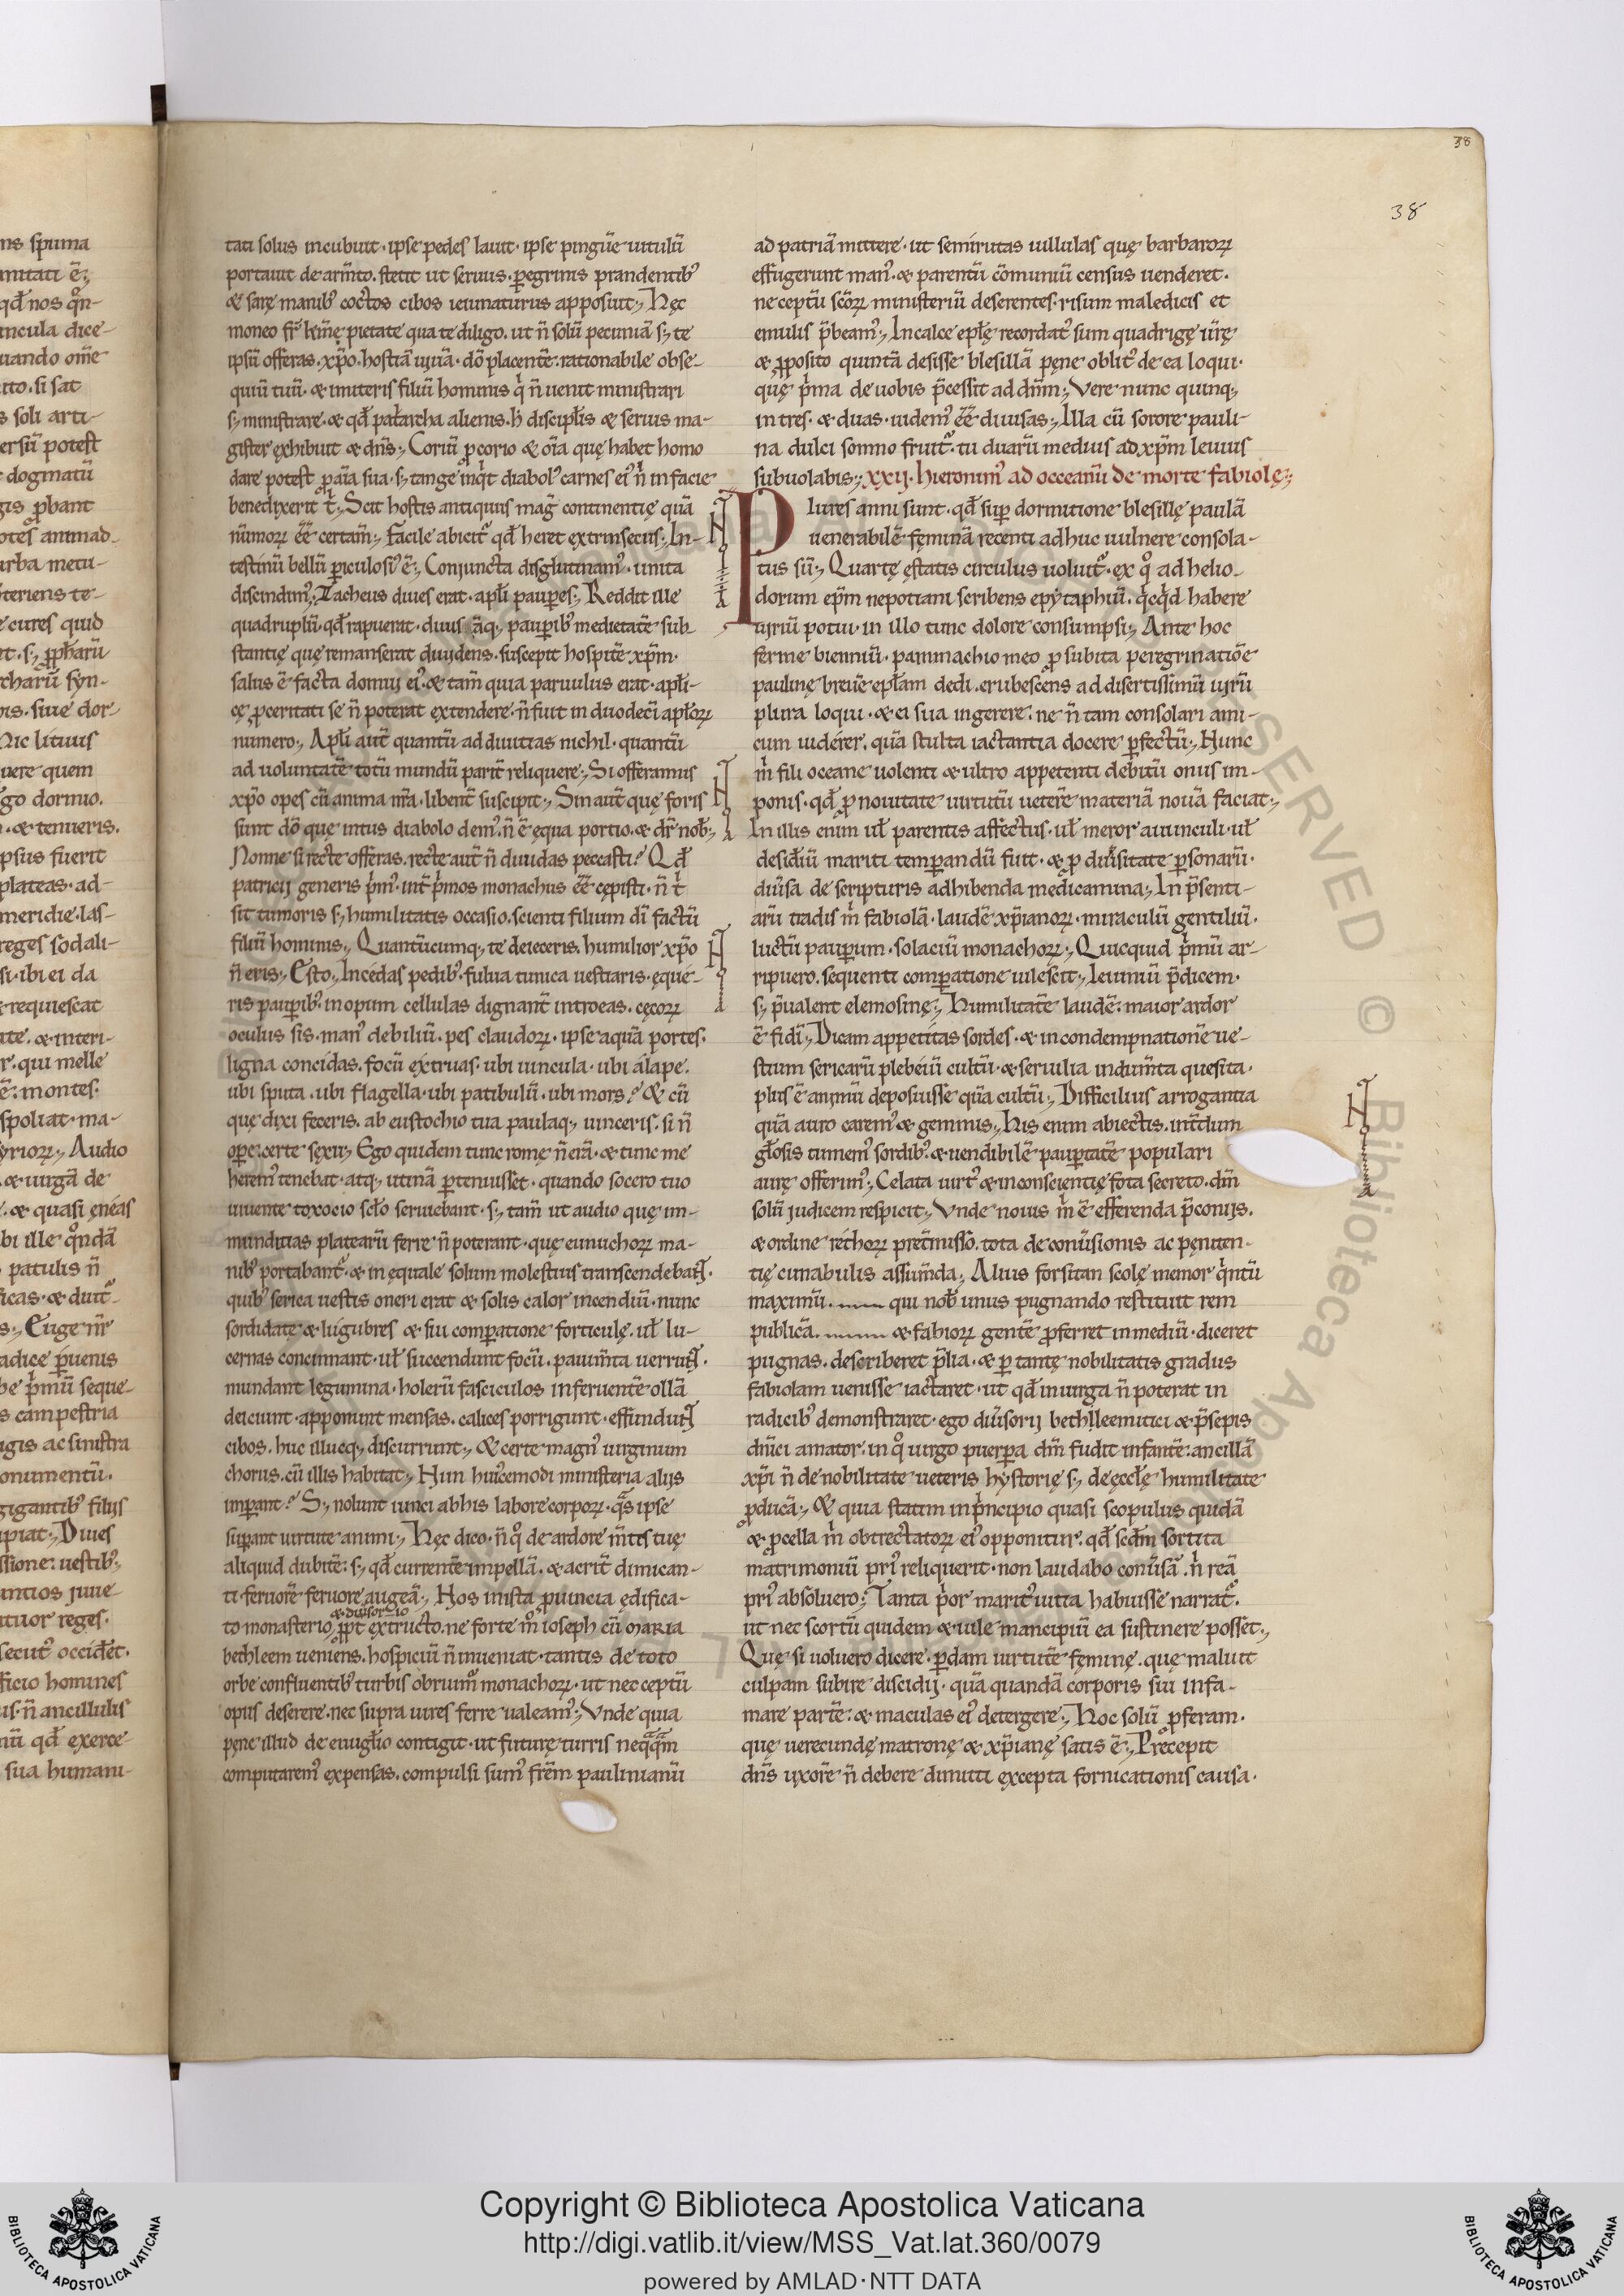 ns spuma
mitati ē;
qđ nos qͦn-
incula dice-
uando om̄e
ito. si sat
s soli arti-
ersū potest
dogmatū
gis ꝓbant
animad-
urba metu-
teriens te-
e cures quid
charū syn-
is. siue dor-
Nic lituus
uere quem
go dormio.
. ⁊ tenueris.
psus fuerit
plateas. ad-
meridie. las-
reges sodali-
si. ibi ei da
requiescat
ate. ⁊ interi-
r. qui melle
ē. montes.
spoliat. ma-
yrioꝝ; Audio
⁊ uirgā de
. ⁊ quasi ęnéas
bi ille qͦndā
patulis n̄
icas. ⁊ duit᷑
s; Euge m̄r
adice ꝑuenis
be p̍mū seque-
s campestria
igis ac sinistra
onumentū.
gigantibꝰ filijs
ipiat; Diues
ssione. uestibꝰ;
untios juue-
tuor reges.
secutꝰ occiđet.
ficio homines
is. n̄ ancillulis
nū qđ exerce-
sua humani-
38
38
tati solus incubuit. ipse pedes lauit. ipse pinguē uitulū
portauit de arm̄to. stetit ut seruus. ꝑegrinis prandentibꝰ
⁊ sarę manibꝰ coctos cibos ieiunaturus apposuit; Hęc
moneo fr̄ kīmę pietate qua te diligo. ut n̄ solū pecuniā s; te
ipsū offeras. xp̄o. hostiā uiuā. dō placentē. rationabile obse-
quiū tuū. ⁊ imiteris filiū hominis q̍ n̄ uenit ministrari
s; ministrare. ⁊ qđ patͥarcha alienis. h̄ discipłis ⁊ seruis ma-
gister ęxhibuit ⁊ dn̄s; Coriū ꝓ corio ⁊ oīa quę habet homo
dare potest ꝓ aīa sua. s; tange inq̍t diabolꝰ carnes eiꝰ n̍ in facie
benedixerit t̍; Scit hostis antiquus maḡ continentię quā
nūmoꝝ ēē certam̄; Facile abicit᷑ qđ heret ęxtrinsecus; In-
testinū bellū ꝑiculosiꝰ ē; Conjuncta disglutinamꝰ. unita
discindimꝰ; Zacheus diues erat. apłi pauꝑes; Reddit ille
quadruplū. qđ rapuerat. diuisāq; pauꝑibꝰ medietatē sub-
stantię quę remanserat diuidens. suscepit hospitē xp̄m.
salus ē facta domuj eiꝰ. ⁊ tam̄ quia paruulus erat. apłi-
cę ꝓceritati se n̄ poterat extendere. n̄ fuit in duodeci apłoꝝ
numero; Apłi aut̄ quantū ad diuitias nichil. quantū
ad uoluntatē totū mundū parit̄ reliquere; Si offeramus
xp̄o opes cū anima nr̄a. libent̄ suscipit; Sin aut̄ quę foris
sunt dō que intus diabolo demꝰ. n̄ ē ęqua portio. ⁊ dr̄ nob̄;
Nonne si recte offeras. recte aut̄ n̄ diuidas peccasti? Qđ
patricij generis p̍mꝰ. int̄ p̍mos monachus ēē cępisti. n̄ t̍
sit tumoris s; humilitatis occasio. scienti filium dī factū
filiū hominis; Quantūcumq; te deieceris. humilior xp̄o
n̄ eris; Esto. Incedas pedibꝰ. fulua tunica uestiaris. ęque-
ris pauꝑibꝰ. inopum cellulas dignant̄ introeas. cęcoꝝ
oculus sis. manꝰ debiliū. pes claudoꝝ. ipse aquā portes.
ligna concidas. focū éxtruas. ubi uincula. ubi álape.
ubi sputa. ubi flagella. ubi patibulū. ubi mors? ⁊ cū
quę dixi feceris. ab eustochio tua paulaq; uinceris. si n̄
oꝑe. certe sęxu; Ego quidem tunc romę n̄ erā. ⁊ tunc me
heremꝰ tenebat. atq; utinā ꝑtenuisset. quando socero tuo
uiuente toxocio scło seruiebant. s; tam̄ ut audio quę im-
munditias platearū ferre n̄ poterant. quę eunuchoꝝ ma-
nibꝰ portabant᷑. ⁊ in ęquale solum molestius transcendebaꞃt.
quibꝰ serica uestis oneri erat ⁊ solis calor incendiū. nunc
sordidatę ⁊ lúgubres ⁊ sui comꝑatione forticulę. uł lu-
cernas concinnant. uł succendunt focū. pauim̄ta uerruꞃt.
mundant legumina. holerū fasciculos in feruentē ollā
deiciunt. apponunt mensas. calices porrigunt. effunduꞃt
cibos. huc illucq; discurrunt; ⁊ certe magnꝰ uirginum
chorus. cū illis habitat; Nun huꝰcemodi ministeria alijs
imꝑant? S; nolunt iunci ab his labore corpoꝝ. q̄s ipse
suꝑant uirtute animi; Hęc dico. n̄ qͦ de ardore m̄tis tuę
aliquid dubitē. s; qđ currentē impellā. ⁊ acrit̄ dimican-
ti feruorē feruore augeā; Hos in ista ꝓuincia ędifica-
⁊ diuisorio
to monasterio ꝓpt̄ extructo. ne forte m̊ ioseph cū maria
bethleem ueniens. hospiciū n̄ inueniat. tantis de toto
orbe confluentibꝰ turbis obruim᷑ monachoꝝ. ut nec ceptū
opus deserere. nec supra uires ferre ualeamꝰ; Vnde quia
pęne illud de euuǥlio contigit. ut futurę turris neqq̄m
computaremꝰ expensas. compulsi sumꝰ frēm paulinianū
ad patriā mittere. ut semirutas uillulas quę barbaroꝝ
effugerunt manꝰ. ⁊ parentū cōmuniū census uenderet.
ne ceptū scōꝝ ministeriū deserentes. risum maledicis et
emulis p̄beamꝰ; In calce epłę recordatꝰ sum quadrigę ur̄ę
⁊ ꝓposito quintā desisse blesillā pęne oblitꝰ de ea loqui.
quę p̍ma de uobis p̄cessit ad dn̄m; Vere nunc quinq;
in tres. ⁊ duas. uidemꝰ ēē diuisas; Illa cū sorore pauli-
na dulci somno fruit᷑. tu duarū medius ad xp̄m leuius
subuolabis; xxij. Hieronimꝰ ad occeanū de morte fabiolę;
Plures anni sunt. qđ suꝑ dormitione blesillę paulā
uenerabilē fęminā recenti adhuc uulnere consola-
tus sū; Quartę ęstatis circulus uoluit᷑. ęx qͦ ad helio-
dorum ep̄m nepotiani scribens epytaphiū. q̍cq̍d habere
uiriū potui. in illo tunc dolore consumpsi; Ante hoc
ferme bienniū. pammachio meo ꝓ subita peregrinatiōe
paulinę breuē epłam dedi. erubescens ad disertissimū uirū
plura loqui. ⁊ ei sua ingerere. ne n̄ tam consolari ami-
cum uidérer. quā stulta iactantia docere ꝑfectū; Hunc
m̍ fili oceane uolenti ⁊ ultro appetenti debitū onus im-
ponis. qđ ꝓ nouitate uirtutū ueterē materiā nouā faciat;
In illis enim uł parentis affectus. uł meror auunculi. uł
desiđiū mariti temꝑandū fuit. ⁊ ꝑ diu᷑sitate ꝑsonarū.
diu᷑sa de scripturis adhibenda medicamina; In p̄senti-
arū tradis m̍ fabiolā. laudē xp̄ianoꝝ. miraculū gentiliū.
luctū pauꝑum. solaciū monachoꝝ; Quicquid p̍mū ar-
ripuero. sequenti comꝑatione uilescit; Ieiuniū p̄dicem.
s; p̄ualent elemosinę; Humilitatē laudē. maior ardor
ē fidī; Dicam appetitas sordes. ⁊ in condempnationē ue-
stium sericarū plebéiū cultū. ⁊ seruilia indum̄ta quesita.
plus ē animū deposuisse quā cultū; Difficilius arrogantia
quā auro caremꝰ ⁊ gemmis; His enim abiectis. int̄dum
głosis tumemꝰ sordibꝰ. ⁊ uendibilē pauꝑtatē populari
aurę offerimꝰ; Celata uirtꝰ ⁊ in conscientię fota secreto. dm̄
solū judicem respicit; Vnde nouis m̍ ē efferenda p̄conijs.
⁊ ordine rethoꝝ pret̄misso. tota de conu᷑sionis ac pęniten-
tię cunabulis assum̄da; Alius forsitan scolę memor q̍ntū
maximū. qui nob̄ unus pugnando restituit rem
publicā. ⁊ fabioꝝ gentē ꝓferret in mediū. diceret
pugnas. describeret p̄lia. ⁊ ꝑ tantę nobilitatis gradus
fabiolam uenisse iactaret. ut qđ in uirga n̄ poterat in
radicibꝰ demonstraret. ego diu᷑sorij bethlleemitici ⁊ p̄sepis
dn̄ici amator. in qͦ uirgo puerꝑa dm̄ fudit infantē. ancillā
xp̄i n̄ de nobilitate ueteris hystorię s; de ęccłę humilitate
ꝓducā; ⁊ quia statim in p̍ncipio quasi scopulus quidā
⁊ ꝓcella m̍ obtrectatoꝝ eiꝰ opponitur. qđ scđm sortita
matrimoniū priꝰ reliquerit. non laudabo conu᷑sā. n̍ reā
priꝰ absoluero; Tanta p̍or maritꝰ uitia habuisse narrat᷑.
ut nec scortū quidem ⁊ uile mancipiū ea sustinere posset;
Quę si uoluero dicere. ꝑdam uirtutē fęminę. quę maluit
culpam subire discidij. quā quandā corporis sui infa-
mare partē. ⁊ maculas eiꝰ detergere; Hoc solū ꝓferam.
quę uerecundę matronę ⁊ xp̄ianę satis ē; Precepit
dn̄s uxorē n̄ debere dimitti excepta fornicationis causa.
Copyright © Biblioteca Apostolica Vaticana
http://digi.vatlib.it/view/MSS_Vat.lat.360/0079
powered by AMLAD·NTT DATA
BIBLIOTECA APOSTOLICA VATICANA
BIBLIOTECA APOSTOLICA VATICANA